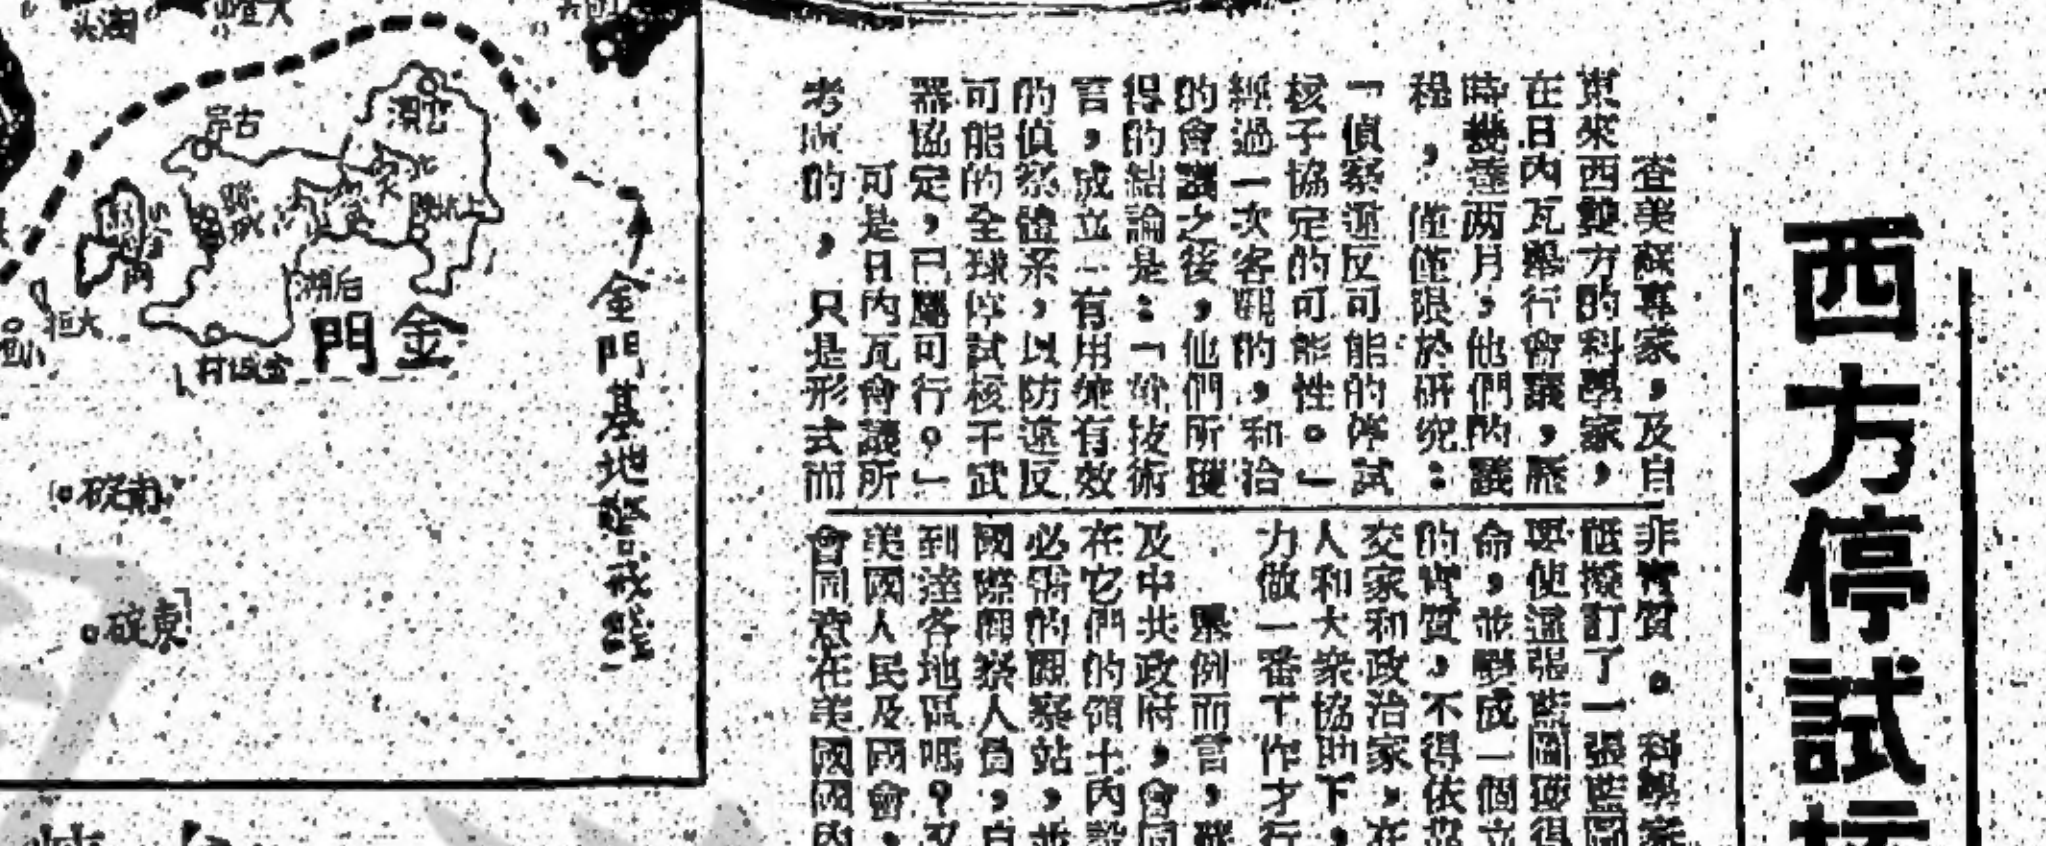 西方停試核
查美蘇專家，及自
東來西雙方的科學家，
在日內瓦舉行會議，歷
時幾達两月，他們的議
程，僅僅限於研究：
「偵察違反可能的停試
核子協定的可能性。」
經過一次客觀的，和洽
的會議之後，他們所獲
得的結論是：「從技術
言，成立一有用兼有效
的偵察體系，以防違反
可能的全球停試核子武
器協定，已屬可行。」
可是日內瓦會議所
考慮的，只是形式而
非實質。科學家
祇擬訂了一張藍圖
要使這張藍圖獲得
命，並變成一個立
的實質，不得依
交家和政治家，在
人和大衆協助下，
力做一番工作才行
舉例而言，
及中共政府，會同
在它們的領土內設
必需的觀察站，並
國際觀察人員，自
到達各地區嗎？又
美國人民及國會，
會同意在美國國內
金門基地警戒綫
金門
古寧
后湖
大担
南碇
東碇